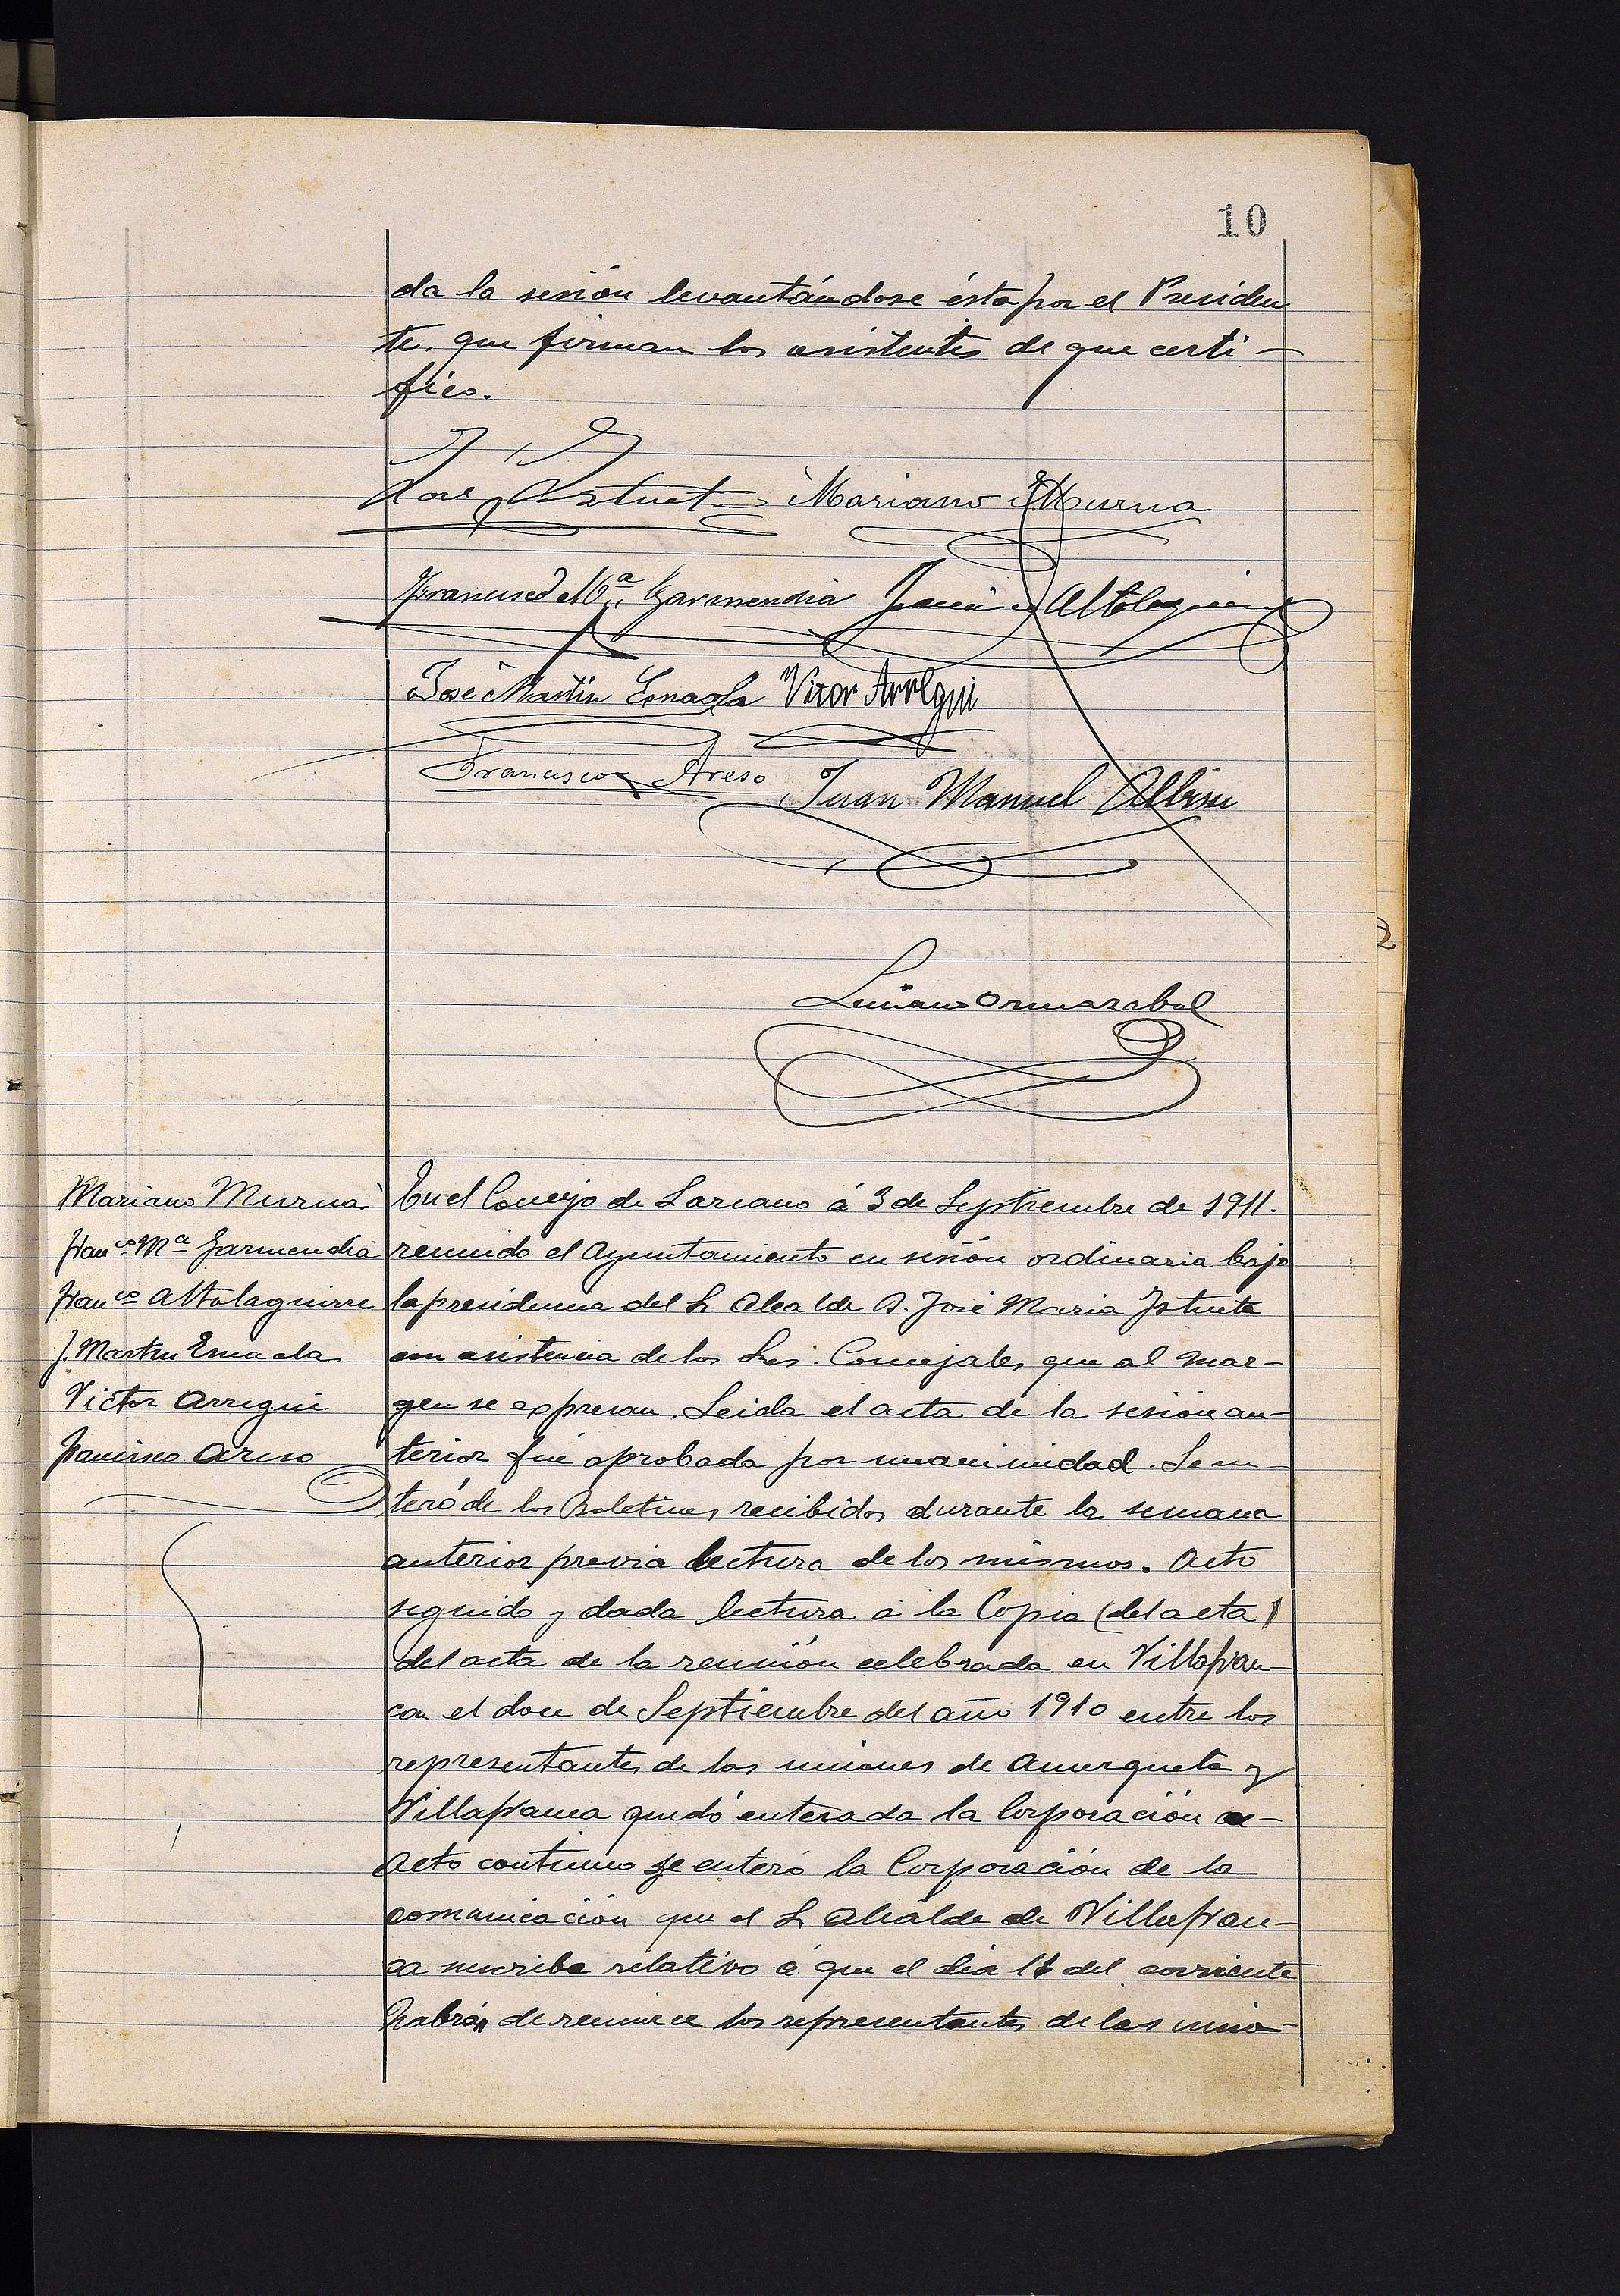 10
da la sesión levantándose ésta por el Presiden
te, que firman los asistentes de que certi-
fico.
José Ma Iztueta Mariano Murua
Francisco Ma Garmendia Francisco Altolaguirre
José Martín Emaola Vitor Arregui
Francisco Areso Juan Manuel Albisu
Luciano Ormazabal
Mariano Murua
Franco Ma Garmendia
Franco Altolaguirre
J. Martin Emaola
Victor Arregui
Francisco Areso
En el Concejo de Lazcano á 3 de Septiembre de 1911.
reunido el Ayuntamiento en sesión ordinaria bajo
la presidencia del Sr. Alcalde D. José Maria Iztueta
con asistencia de los Sres. Concejales que al mar-
gen se expresan. Leida el acta de la sesión an-
terior fué aprobada por unanimidad. Se en-
teró de los Boletines recibidos durante la semana
anterior previa lectura de los mismos. Acto
seguido y dada lectura á la Copia (del acta)
del acta de la reunión celebrada en Villafran-
ca el doce de Septiembre del año 1910 entre los
representantes de las uniones de Amezqueta y
Villafranca quedó enterada la Corporación
Acto continuo se enteró la Corporación de la
comunicación que el Sr Alcalde de Villafran-
ca suscribe relativo á que el dia del corriente
habrán de reunirse los representantes de las unio-